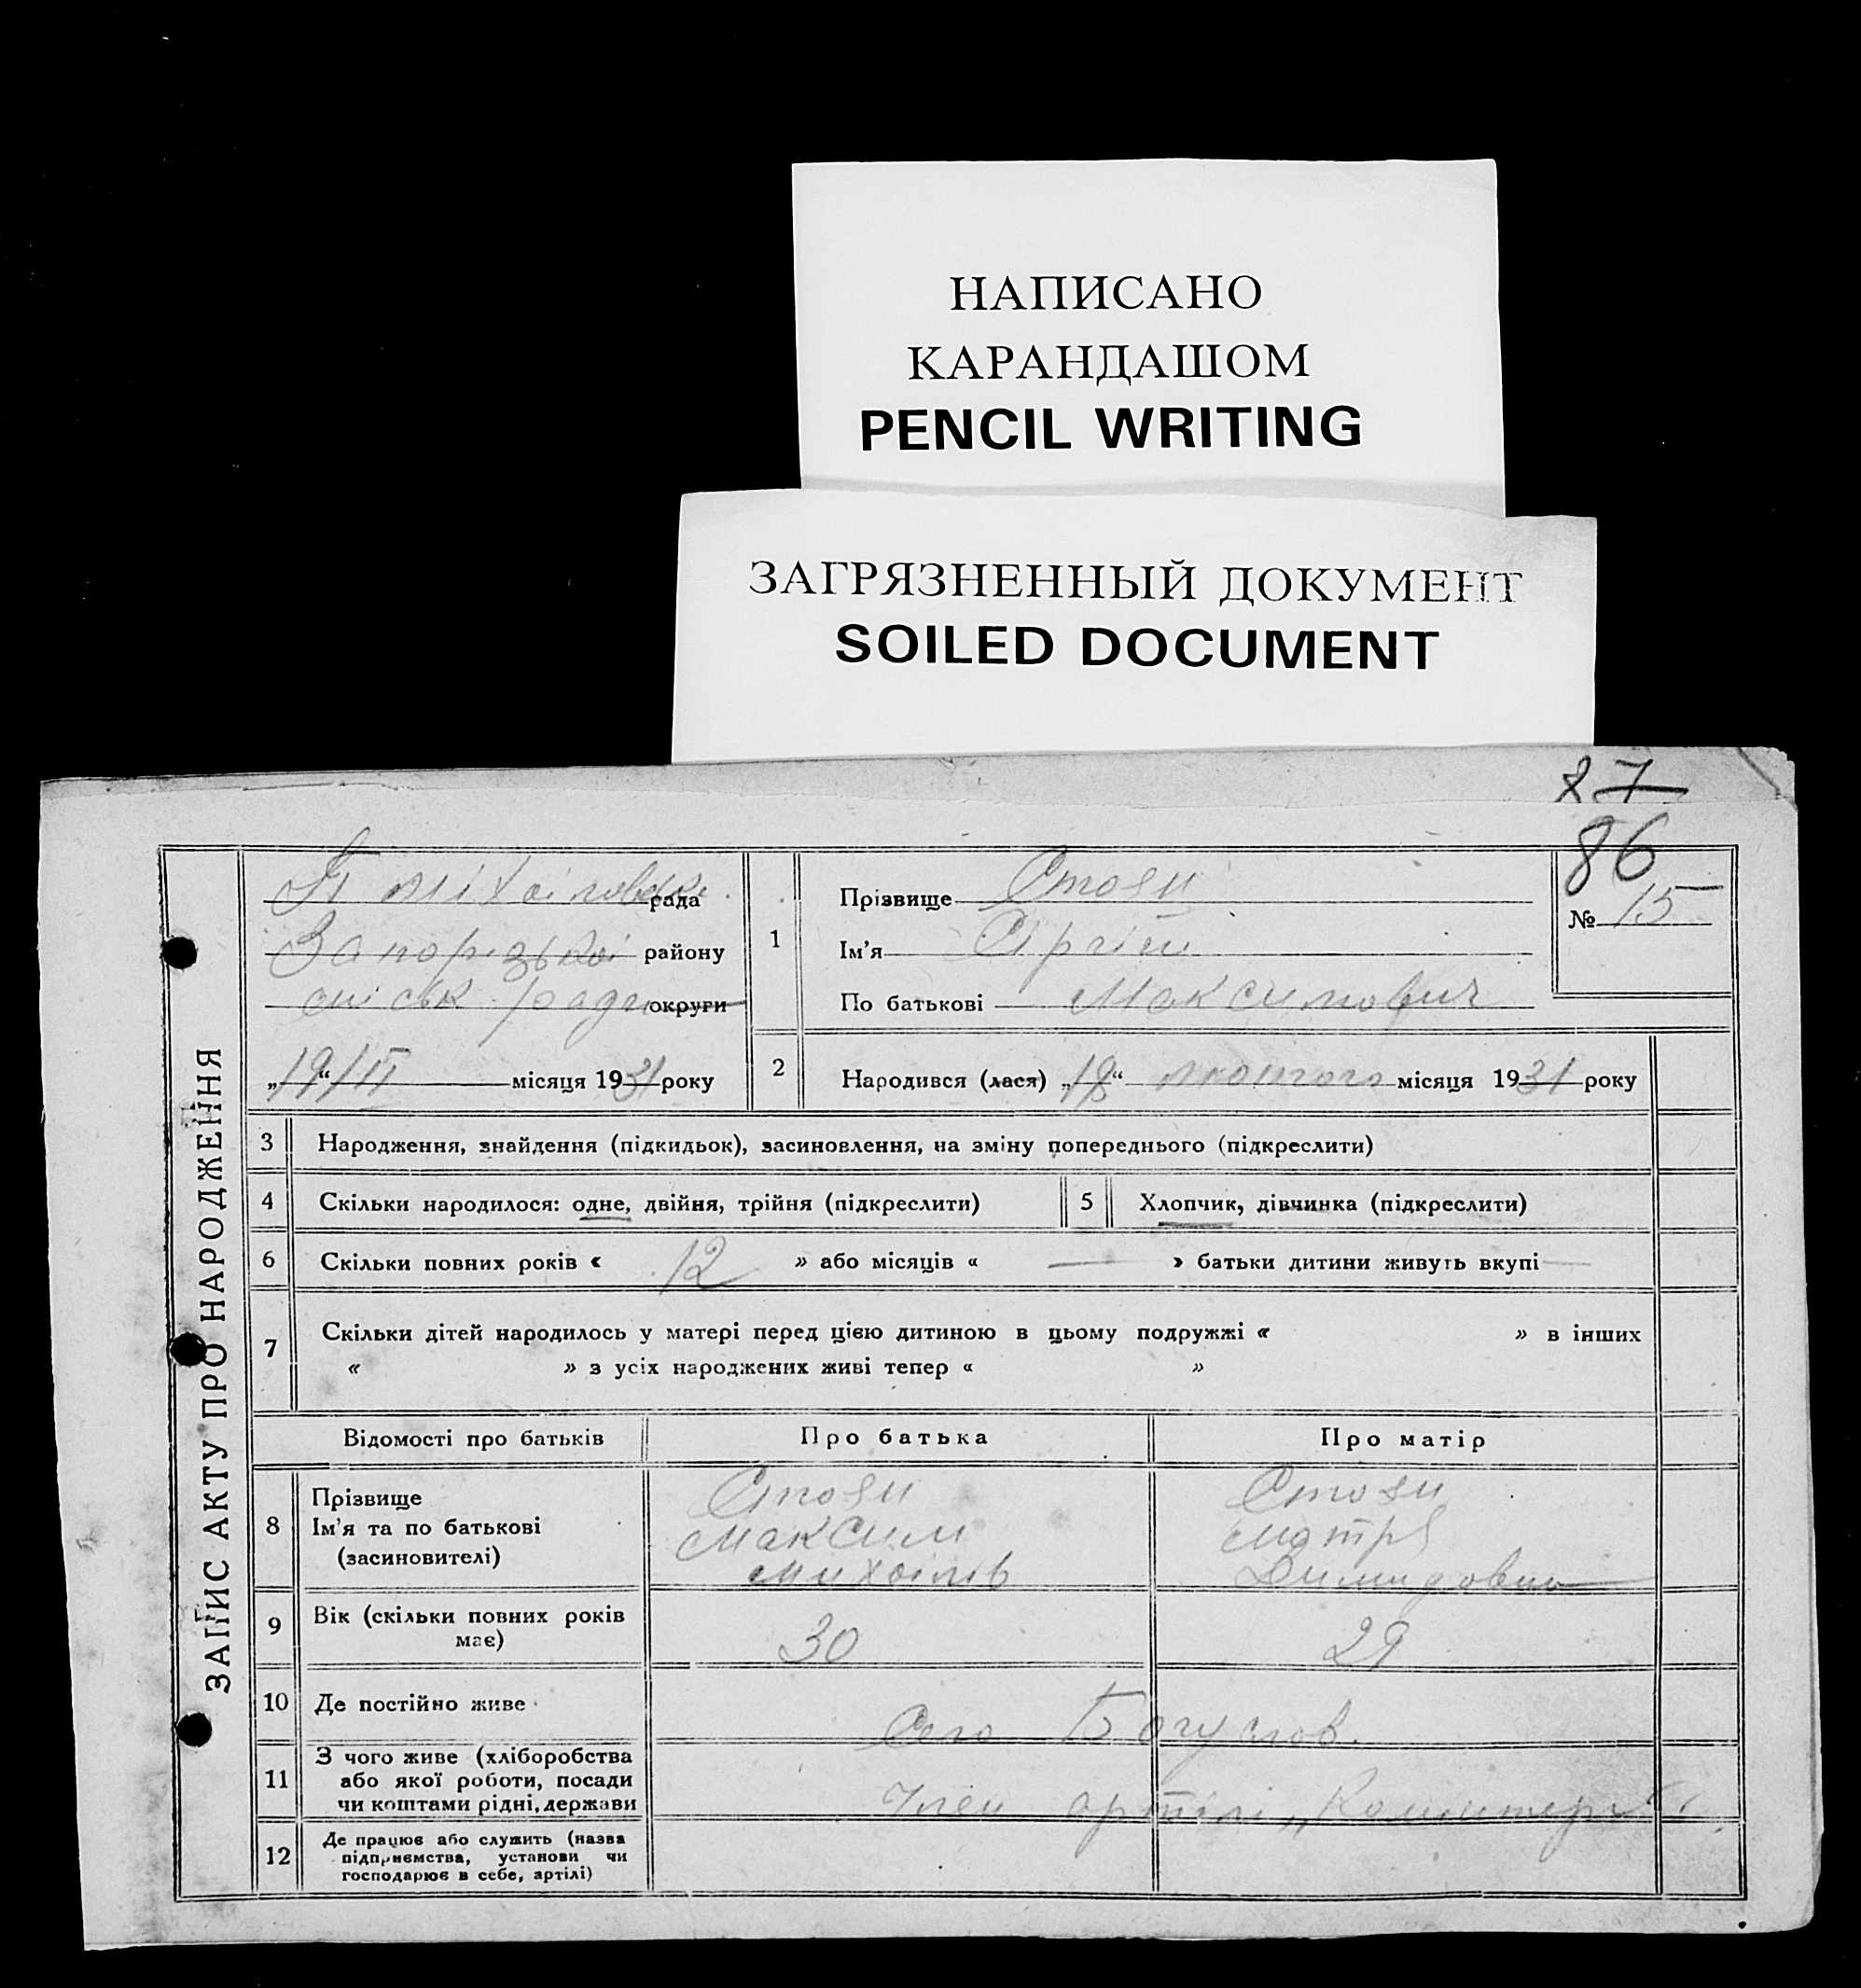 НАПИСАНО
КАРАНДАШОМ
PENCIL WRITING
ЗАГРЯЗНЕННЫЙ ДОКУМЕНТ
SOILED DOCUMENT
87
86
ЗАПИС АКТУ ПРО НАРОДЖЕННЯ
рада
Запорізької району
міськ ради округи
„19“/II місяця 1931 року
1
Прізвище Стоян
Ім'я Сіргій
По батькові Максимович
№ 15
2 Народився (лася) „18“ лютого місяця 1931 року
3 Народження, знайдення (підкидьок), засиновлення, на зміну попереднього (підкреслити)
4 Скільки народилося: одне, двійня, трійня (підкреслити) 5 Хлопчик, дівчинка (підкреслити)
6 Скільки повних років « 12 » або місяців « — » батьки дитини живуть вкупі —
7 Скільки дітей народилось у матері перед цією дитиною в цьому подружжі « » в інших
« » з усіх народжених живі тепер « »
Відомості про батьків Про батька Про матір
8 Прізвище Стоян Стоян
Ім'я та по батькові Максим Мотря
(засиновителі) Михайлів
9 Вік (скільки повних років має) 30 29
10 Де постійно живе Село Богуслов.
11 З чого живе (хліборобства
або якої роботи, посади
чи коштами рідні, держави Член артілі „Комінтерн“
12 Де працює або служить (назва
підприємства, установи чи
господарює в себе, артілі)